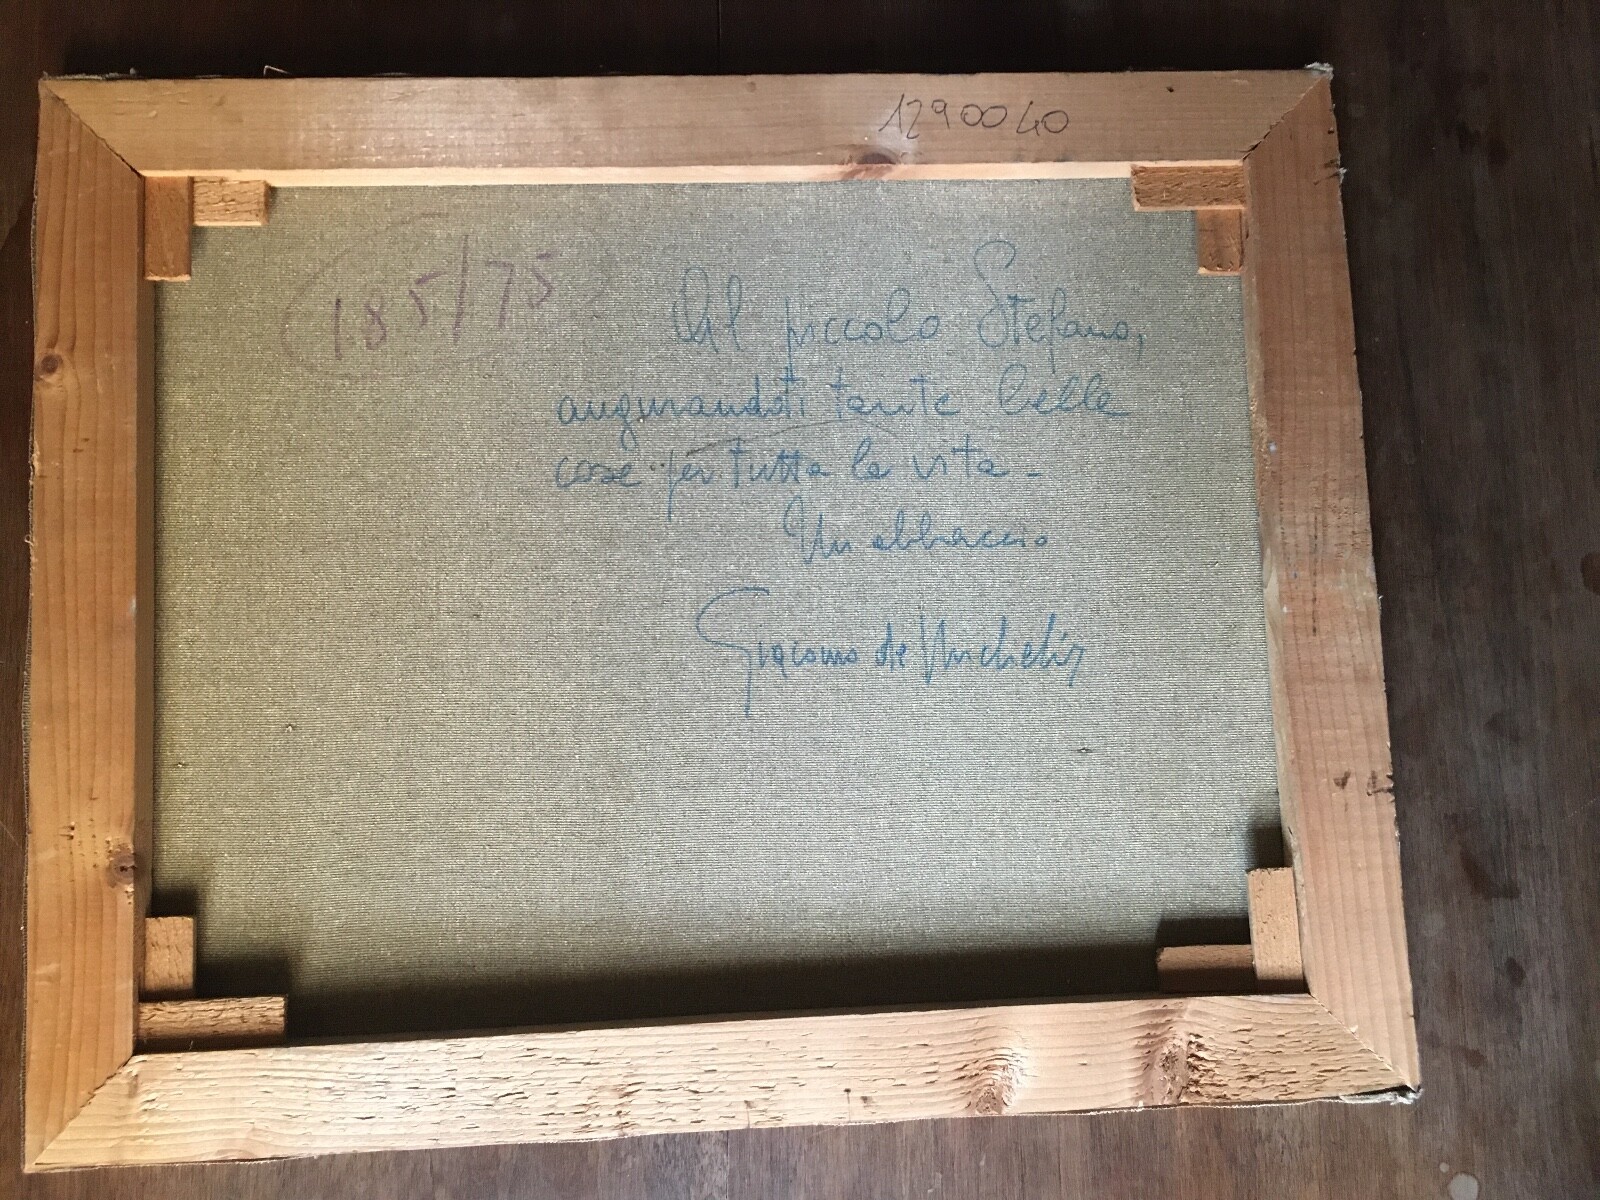 1290040
185/75
Al piccolo Stefano,
augurandoti tante belle
cose per tutta la vita -
Un abbraccio
Giacomo de Michelis